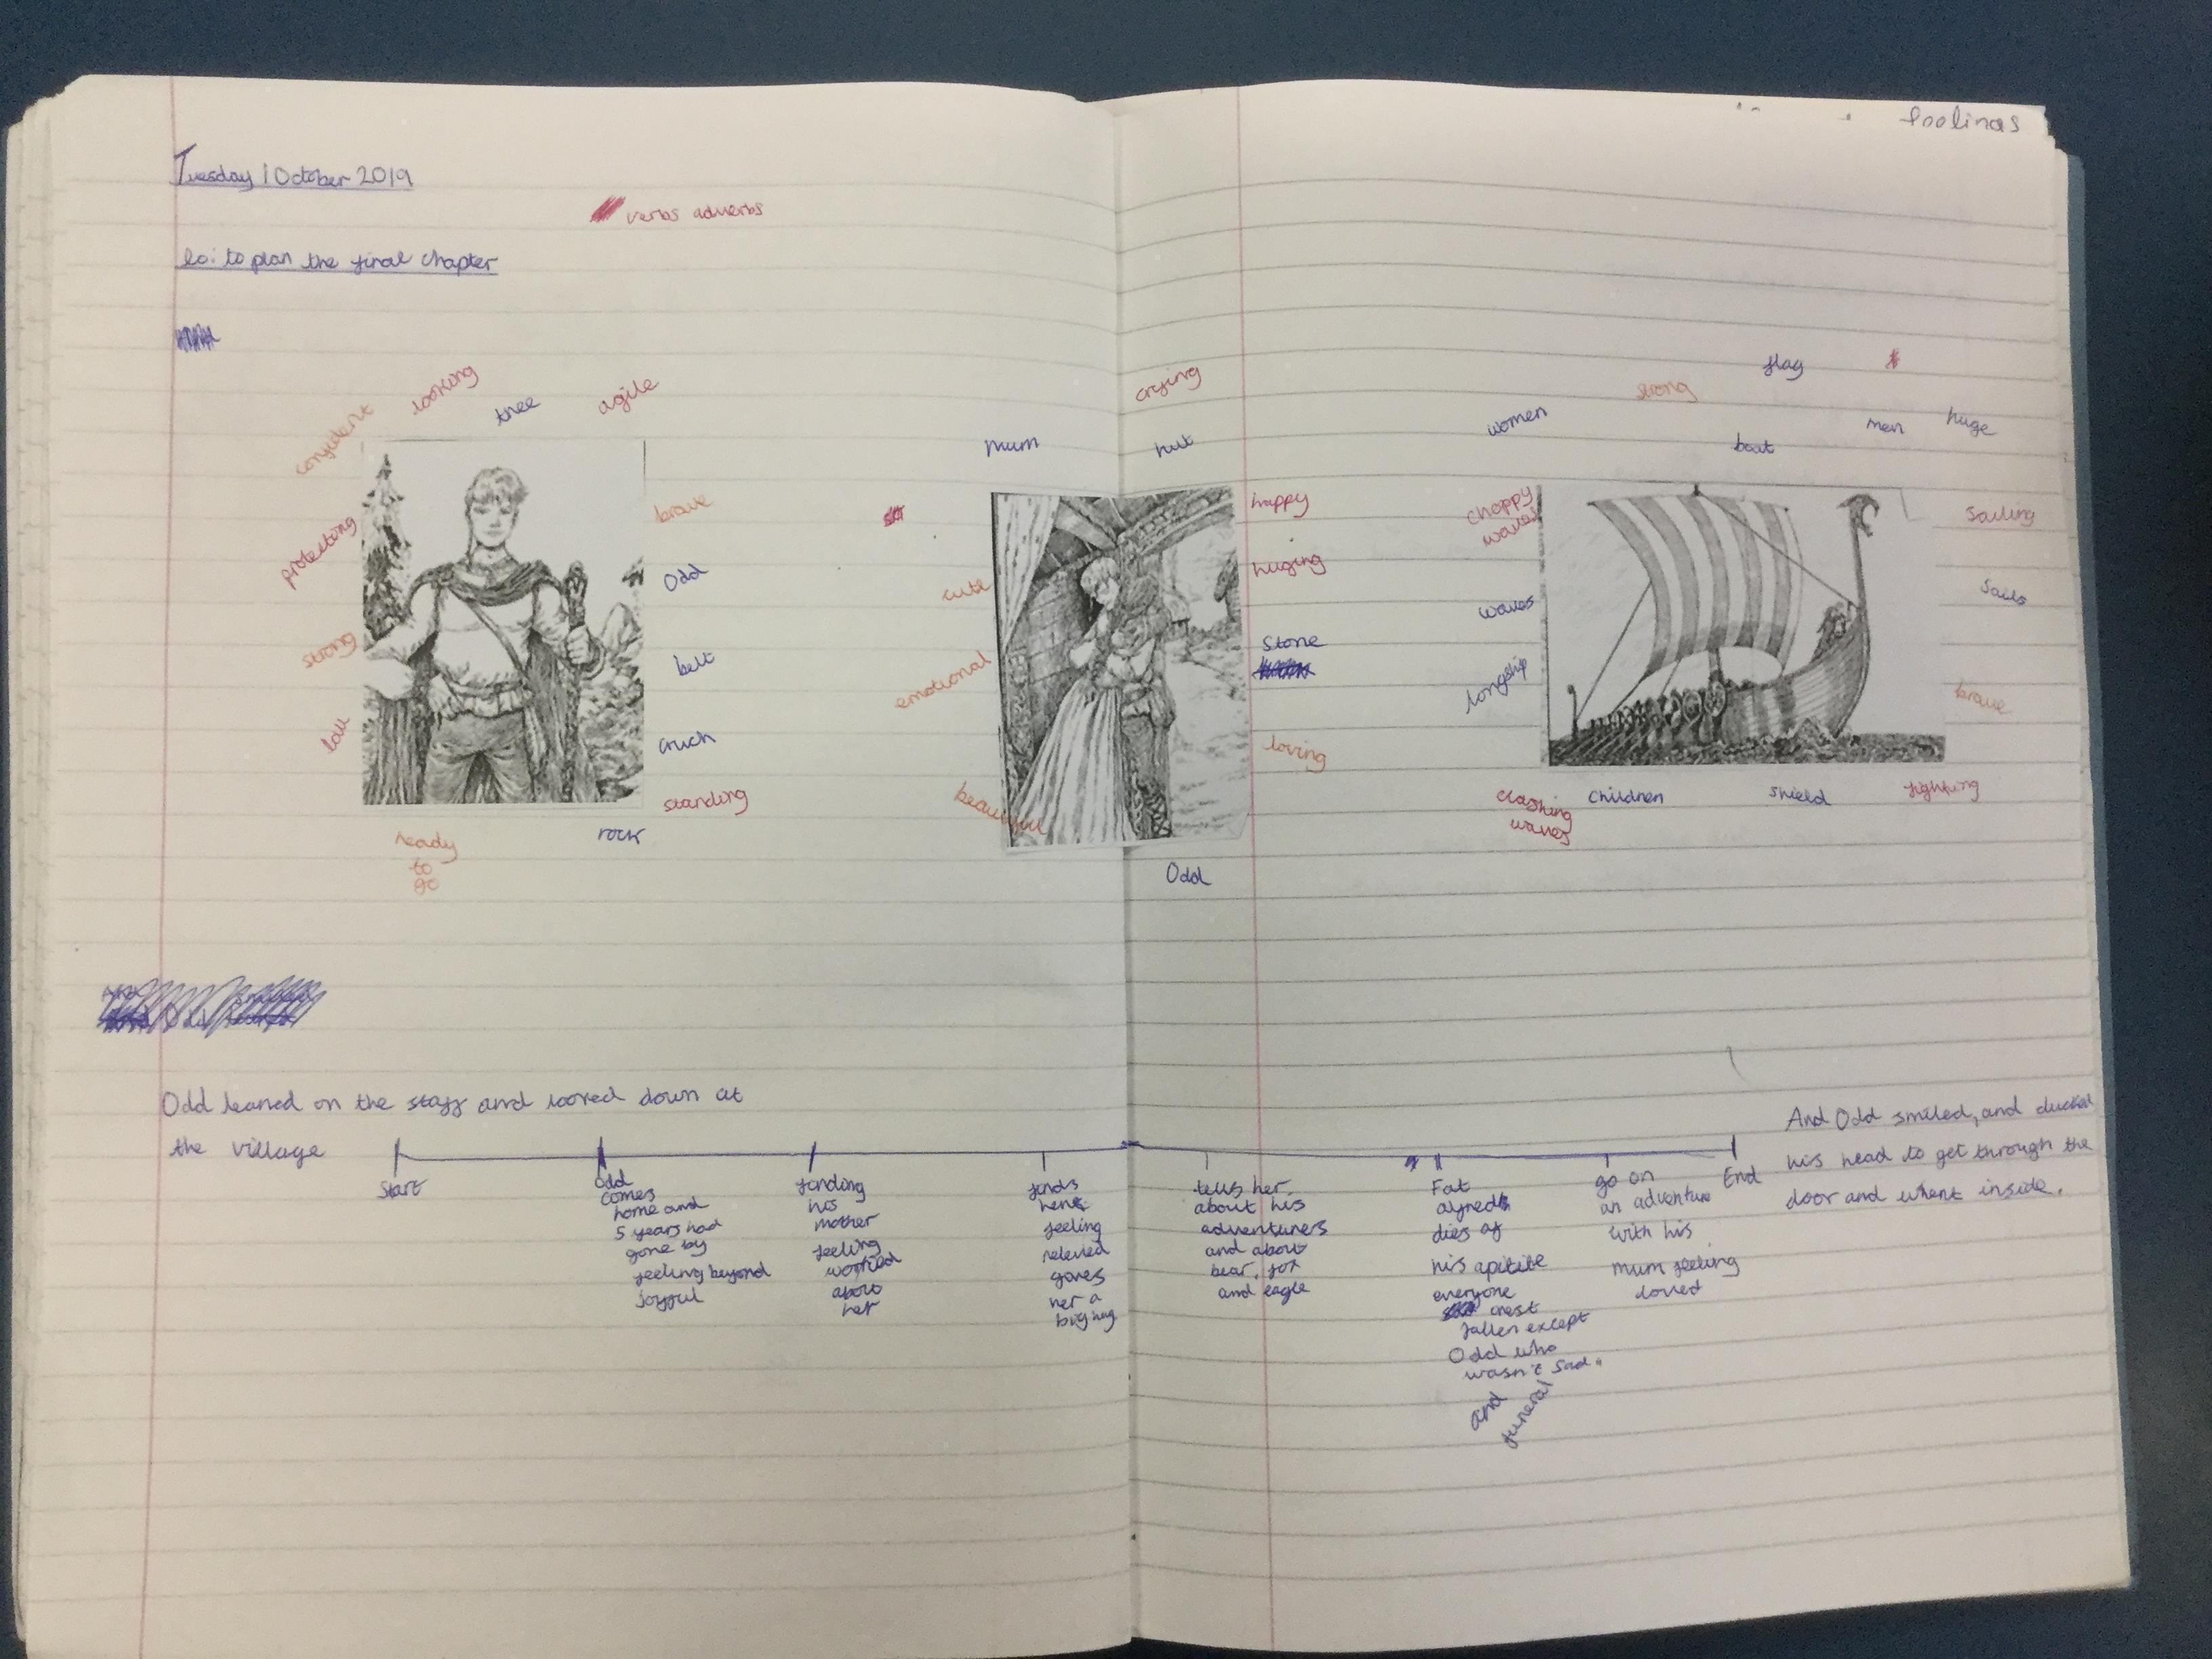 foolinas
Tuesday 1 October 2019
verbs adverbs
Lo: to plan the final chapter
confident
looking
tree
agile
protecting
strong
tall
brave
Odd
belt
cruch
standing
ready
to
go
rock
crying
mum
hut
cute
emotional
beautiful
happy
huging
Stone
loving
Odd
flag
strong
women
boat
men
huge
choppy
waves
waves
longship
sailing
sails
brave
clashing
waves
children
shield
fighting
Odd leaned on the staff and looked down at
the village
Start
Odd
comes
home and
5 years had
gone by
feeling beyond
joyful
finding
his
mother
feeling
worried
about
her
finds
her
feeling
relieved
gives
her a
big hug
tells her
about his
adventuners
and about
bear, fox
and eagle
Fat
alfred
dies of
his apitite
everyone
crest
fallen except
Odd who
wasn't sad.
and
funeral
go on
an adventure
with his
mum feeling
loved
End
And Odd smiled, and ducked
his head to get through the
door and whent inside.